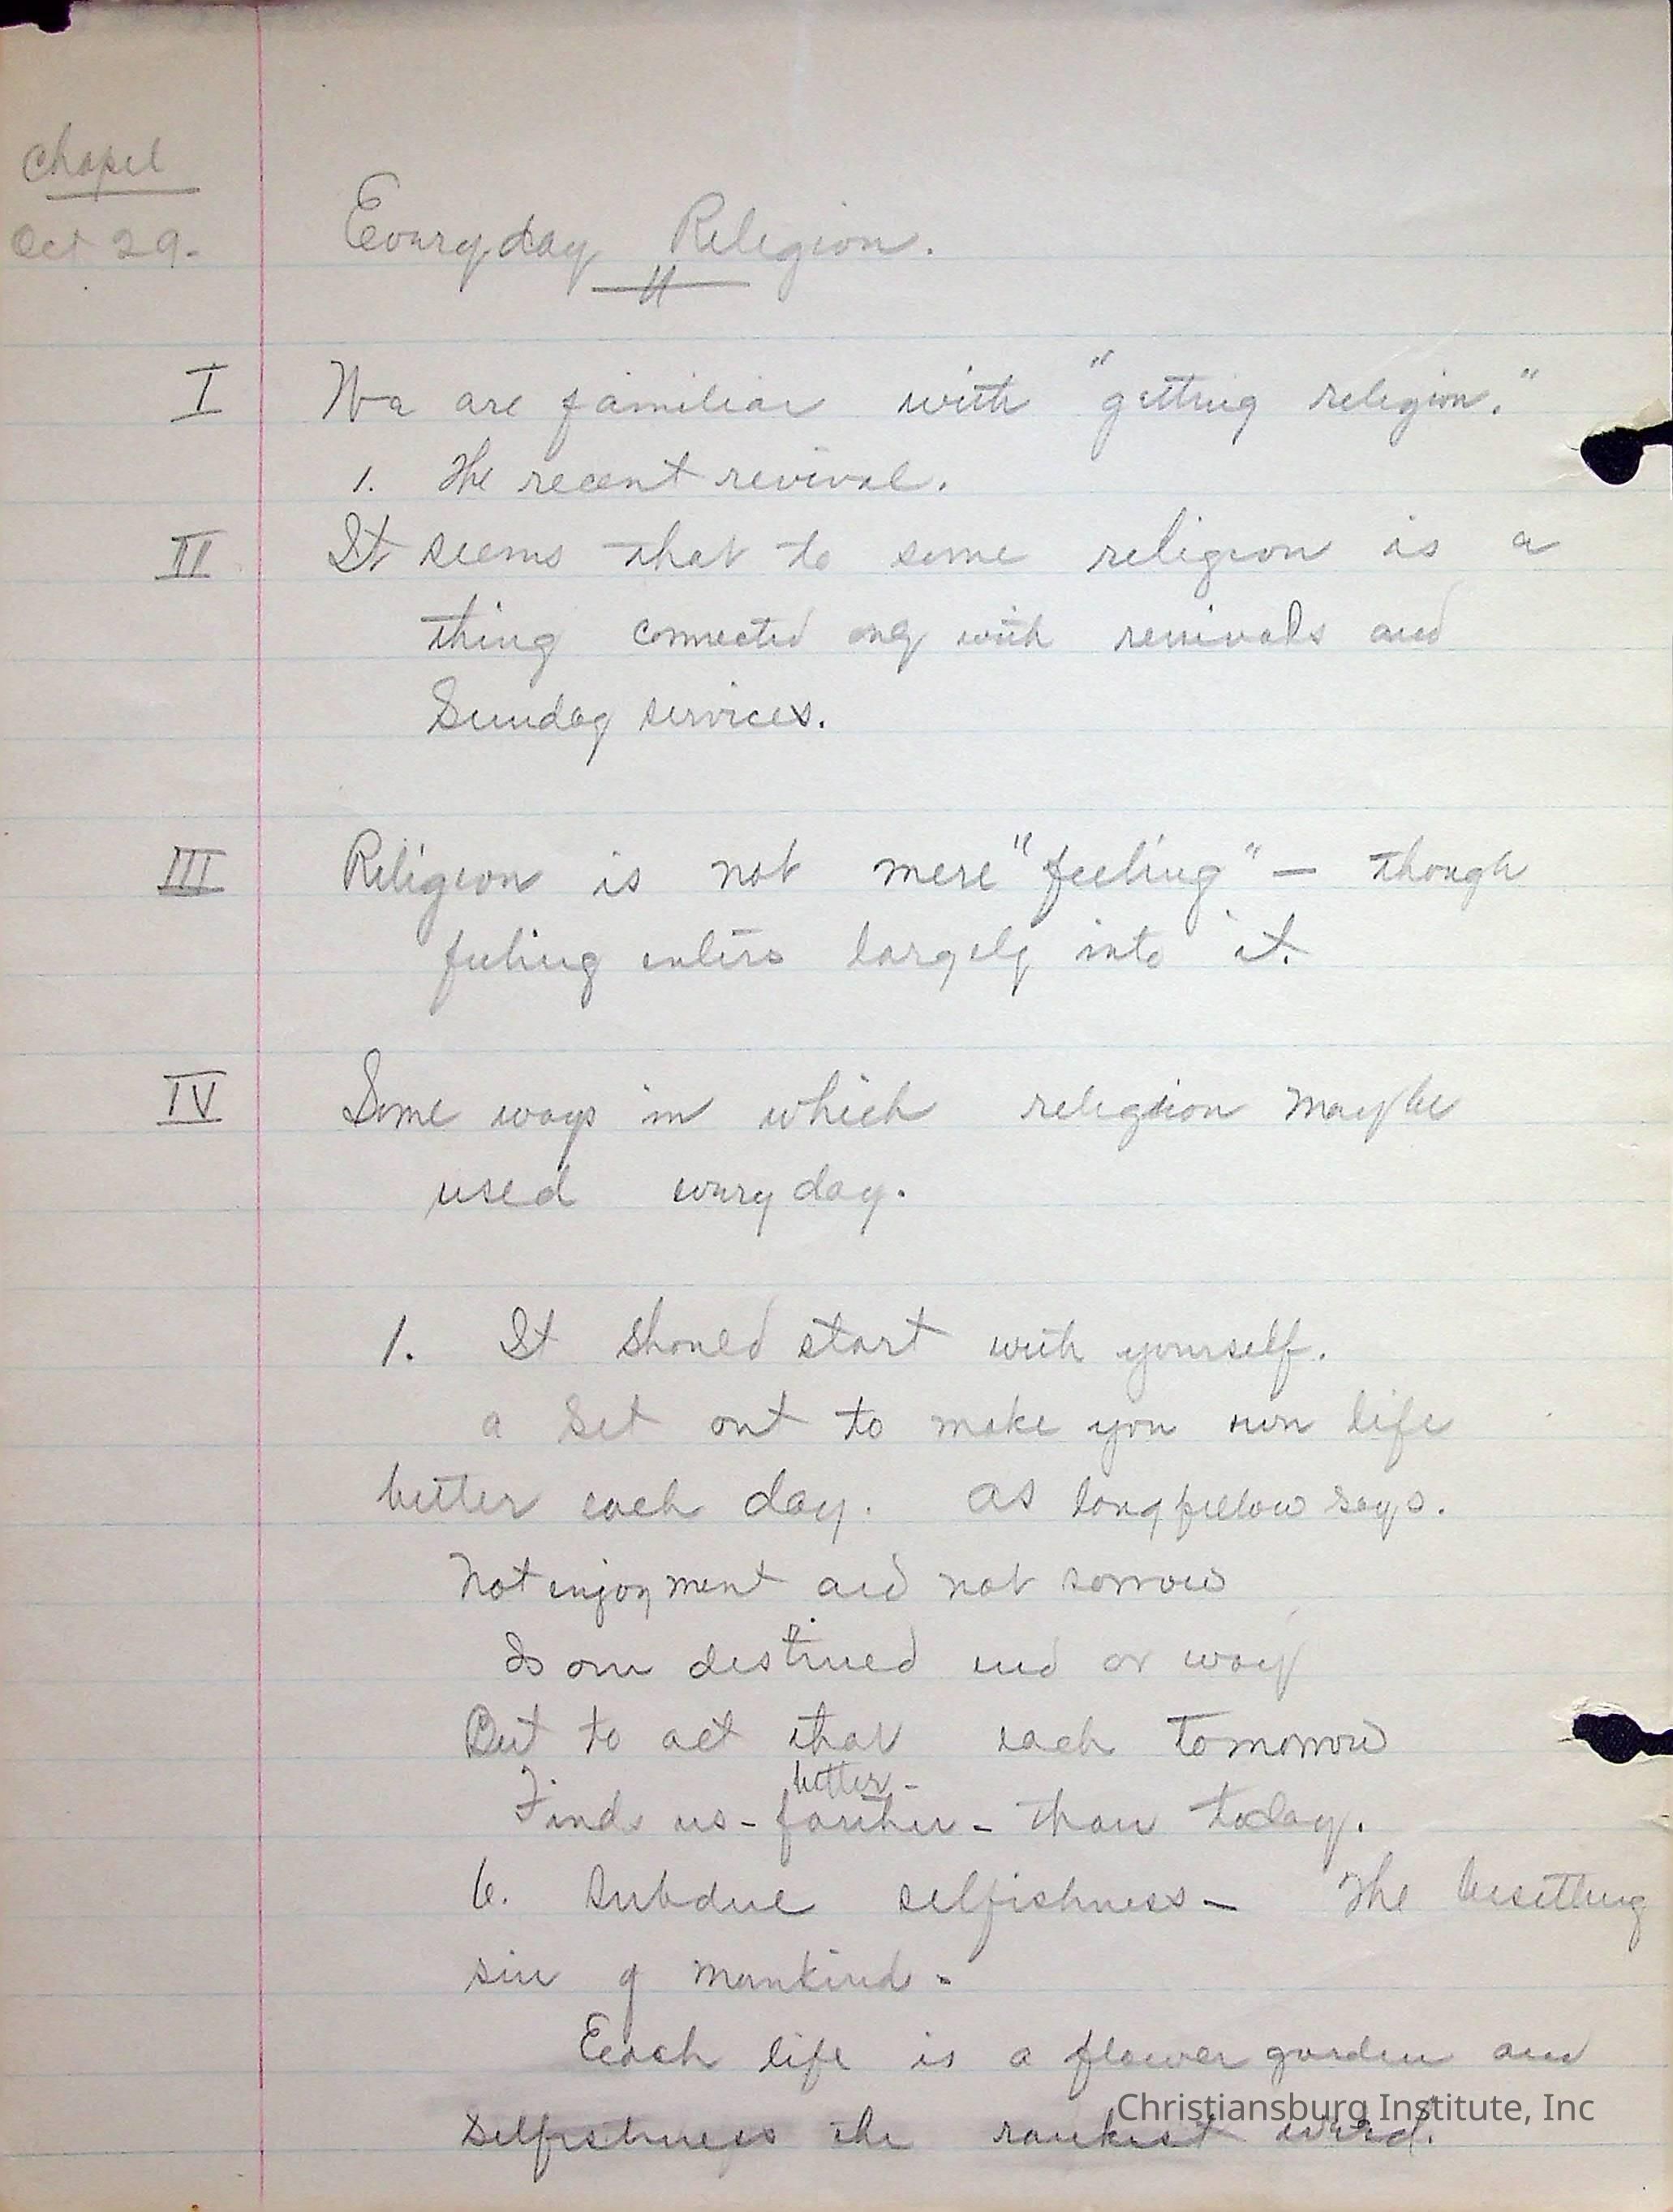 Chapel
Oct 29.
Everyday Religion.
I We are familiar with "getting religion."
1. The recent revival.
II It seems that to some religion is a
thing connected only with revivals and
Sunday services.
III Religion is not mere "feeling" — though
feeling enters largely into it.
IV Some ways in which religion may be
used every day.
1. It should start with yourself.
a Set out to make you own life
better each day. As Longfellow says.
Not enjoyment and not sorrow
Is our destined end or way
But to act that each tomorrow
better -
Finds us - farther - than today.
b. Subdue selfishness — The besetting
sin of mankind.
Each life is a flower garden and
Selfishness the rankest weed.
Christiansburg Institute, Inc